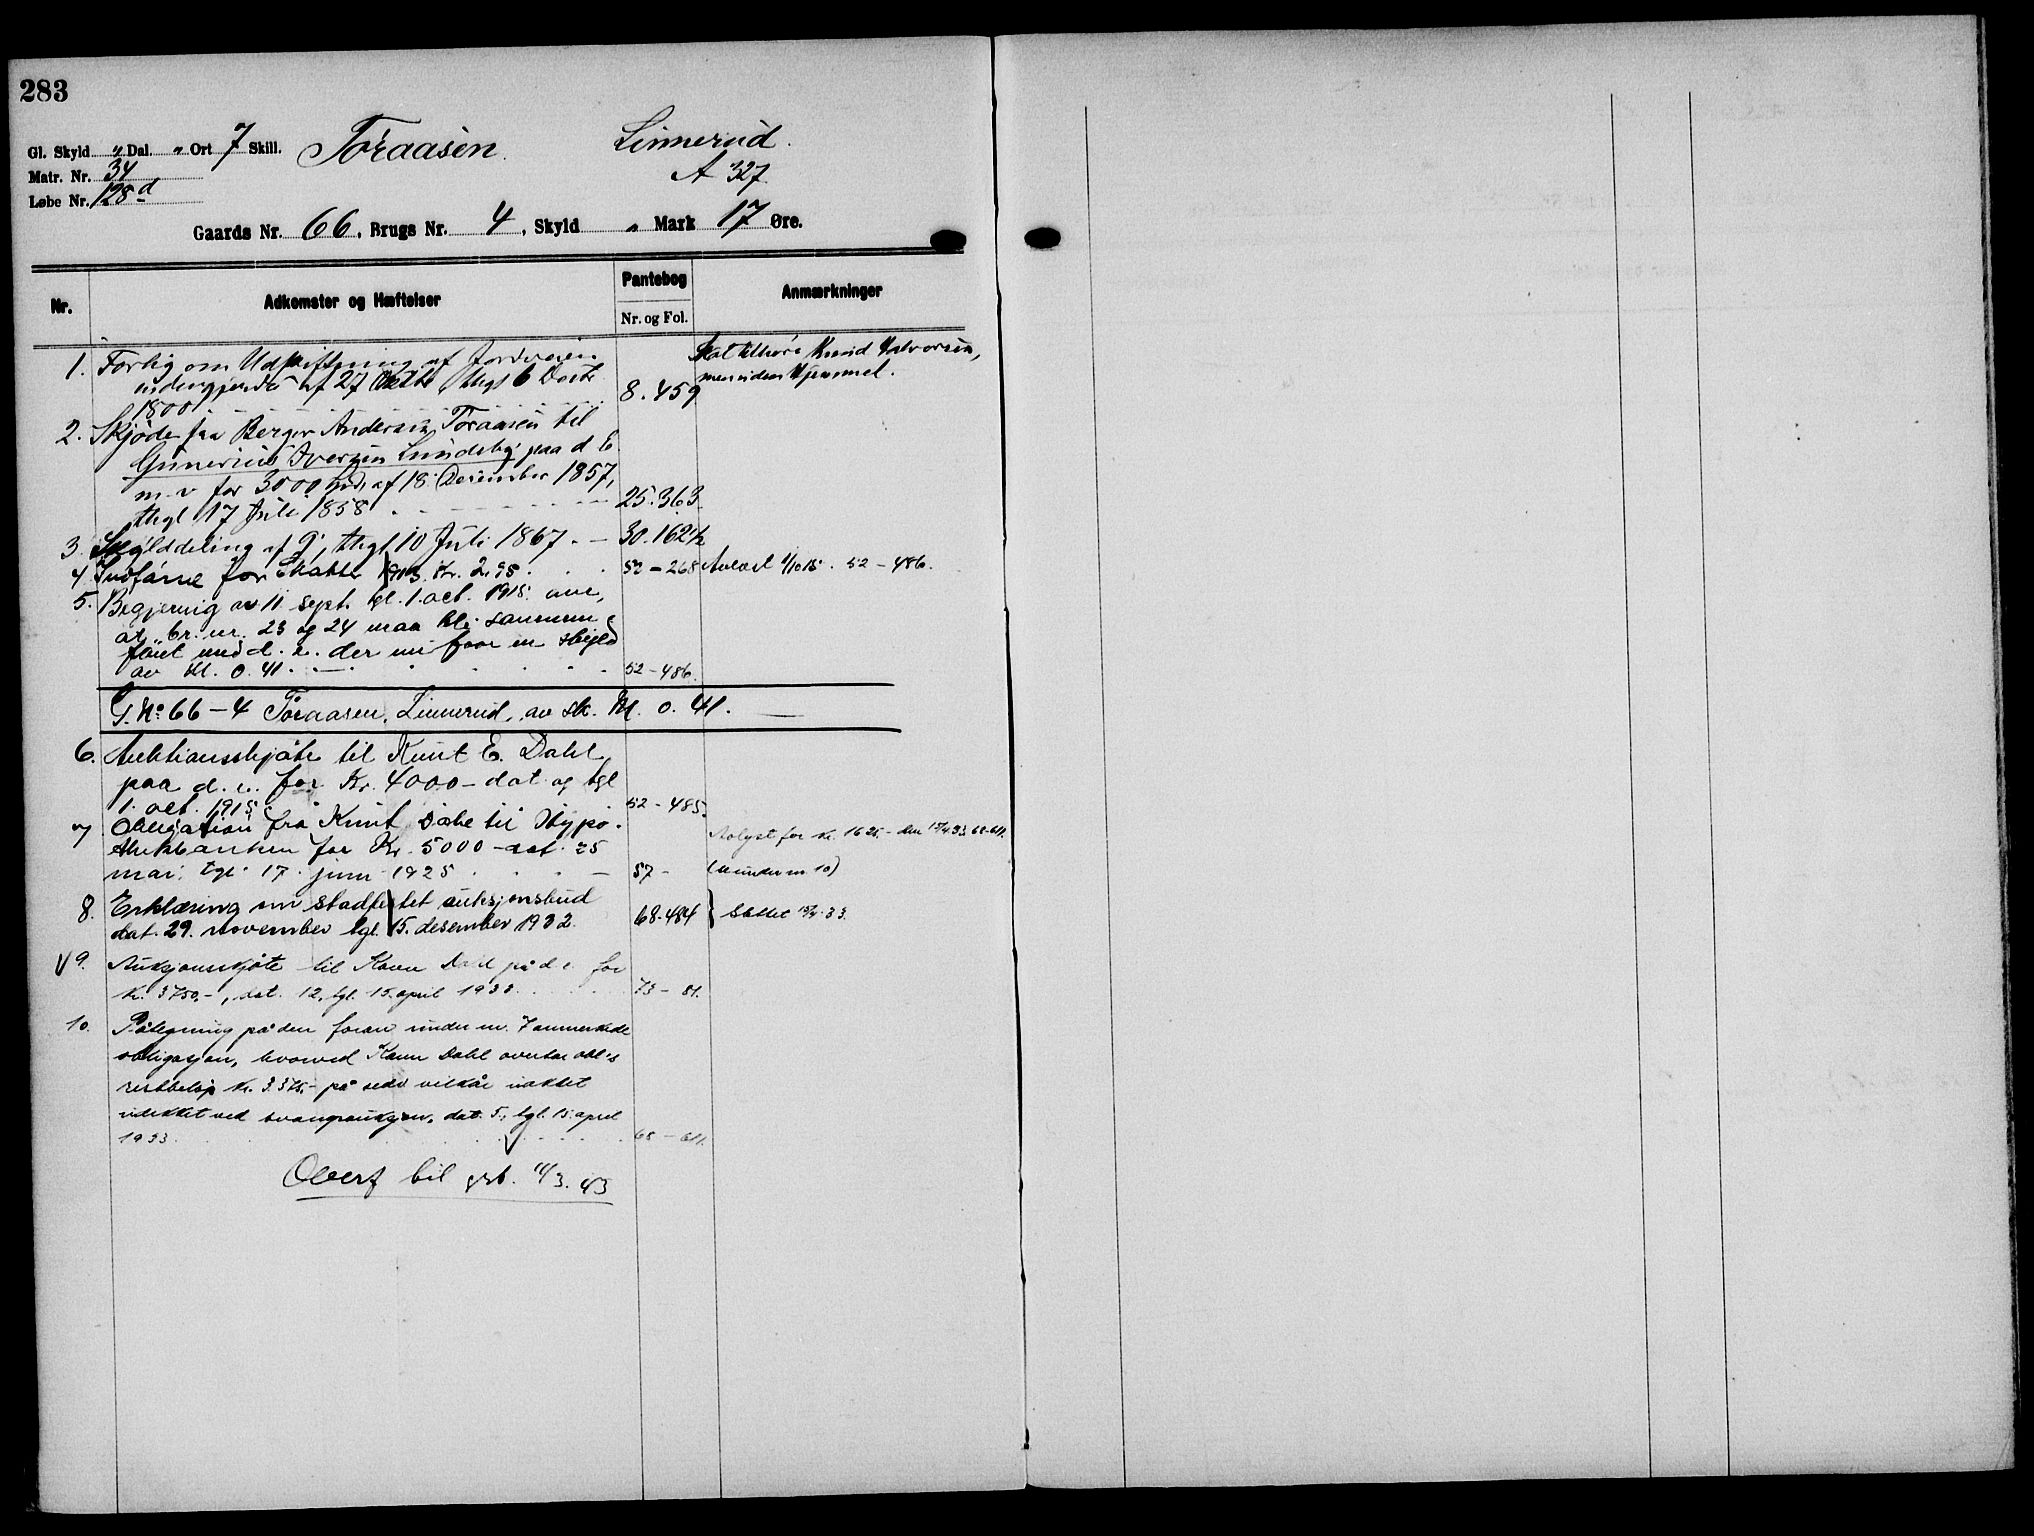 283
Gl. Skyld " Dal. " Ort 7 Skill. Töraasen. Linnerud.
Matr. Nr. 34 A 327
Løbe Nr. 128 d
Gaards Nr. 66, Brugs Nr. 4, Skyld " Mark 17 Øre.
Nr. Adkomster og Hæftelser Pantebog Anmærkninger
Nr. og Fol.
1. Forlig om Udskiftning af Jordveien
af 27 thgl 6
1800 8.459
Skal tilhøre Knud Halvorsen,
men uden Hjemmel.
2. Skjöde fra Berger Andersen Töraasen til
Gunerius Iversen Lundeby paa d. E
m. v for 3000 af 18 December 1857,
thgl 17 Juli 1858 25.363
3. Skylddeling af 9', thgl 10 Juli 1867. — 30.162½
4 Indførsel for Skatter 1913. Kr. 2,95. 52 – 268 Avlæst 1/10 15. 52 – 486.
5. Begjæring av 11 sept. tgl. 1. oct. 1915. om,
at br. nr. 23 og 24 maa bli sammen-
føiet med d. e. der nu faar en skyld
av M. 0.41. 52 – 486.
G. No 66 – 4 Töraasen, Linnerud, av sk. M. 0.41.
6. Auktionsskjøte til Knut E. Dahl
paa d. e. for Kr. 4000 – dat og tgl
1. oct. 1915 52 – 485.
7 Obligation fra Knut Dahl til Hypo-
thekbanken for Kr. 5000 – dat. 25
mai, tgl. 17. juni 1925 57 –
Avlyst for kr. 1625.– den 15/4.33. 68-611.
(se under nr. 10)
8. Erklæring om stadfestet auksjonsbud
dat. 29. november tgl. 15. desember 1932. 68-484 } Slettet 15/4-33.
V 9. Auksjonsskjøte til Karen Dahl på d. e. for
Kr. 3750.–, dat. 12, tgl. 15. april 1933. 73 – 81.
10. Påtegning på den foran under nr. 7 anmerkede
obligasjon, hvorved Karen Dahl overtar obl's
restbeløp kr. 3.375.– på vilkår
ved tvangsauksjon, dat. 5., tgl. 15. april
1933. 68 – 611.
Overf til grb. 11/3.43